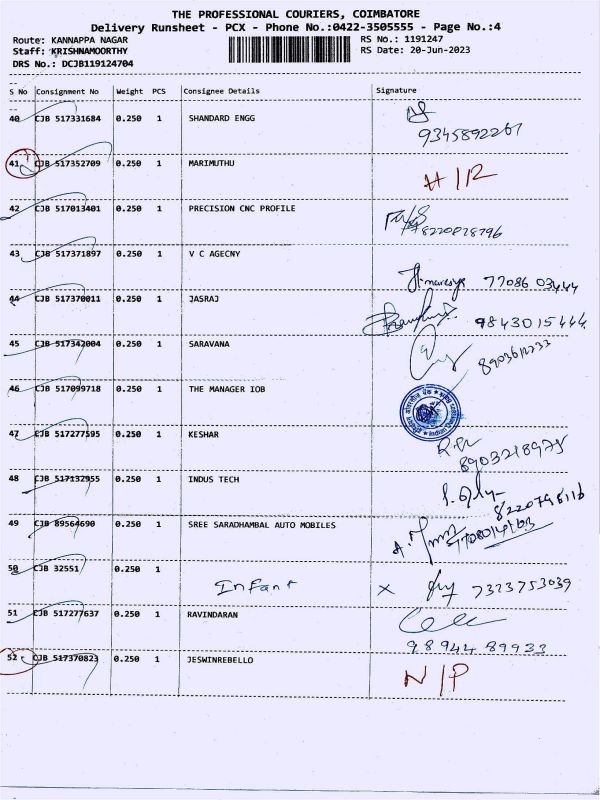 THE PROFESSIONAL COURIERS, COIMBATORE
Delivery Runsheet - PCX - Phone No.:0422-3505555 - Page No.:4
Route: KANNAPPA NAGAR RS No.: 1191247
Staff: KRISHNAMOORTHY RS Date: 20-Jun-2023
DRS No.: DCJB119124704
S No Consignment No Weight PCS Consignee Details Signature
40 CJB 517331684 0.250 1 SHANDARD ENGG
9345892267
41 CJB 517352709 0.250 1 MARIMUTHU H/R
42 CJB 517013401 0.250 1 PRECISION CNC PROFILE
8220828796
43 CJB 517371897 0.250 1 V C AGECNY
77086 03444
44 CJB 517370011 0.250 1 JASRAJ
9843015444
45 CJB 517342004 0.250 1 SARAVANA
46 CJB 517099718 0.250 1 THE MANAGER IOB
47 CJB 517277595 0.250 1 KESHAR
8903218975
48 CJB 517132955 0.250 1 INDUS TECH
49 CJB 89564690 0.250 1 SREE SARADHAMBAL AUTO MOBILES
50 CJB 32551 0.250 1
Infant x 7323753039
51 CJB 517277637 0.250 1 RAVINDARAN
98944 89933
52 CJB 517370823 0.250 1 JESWINREBELLO N/P